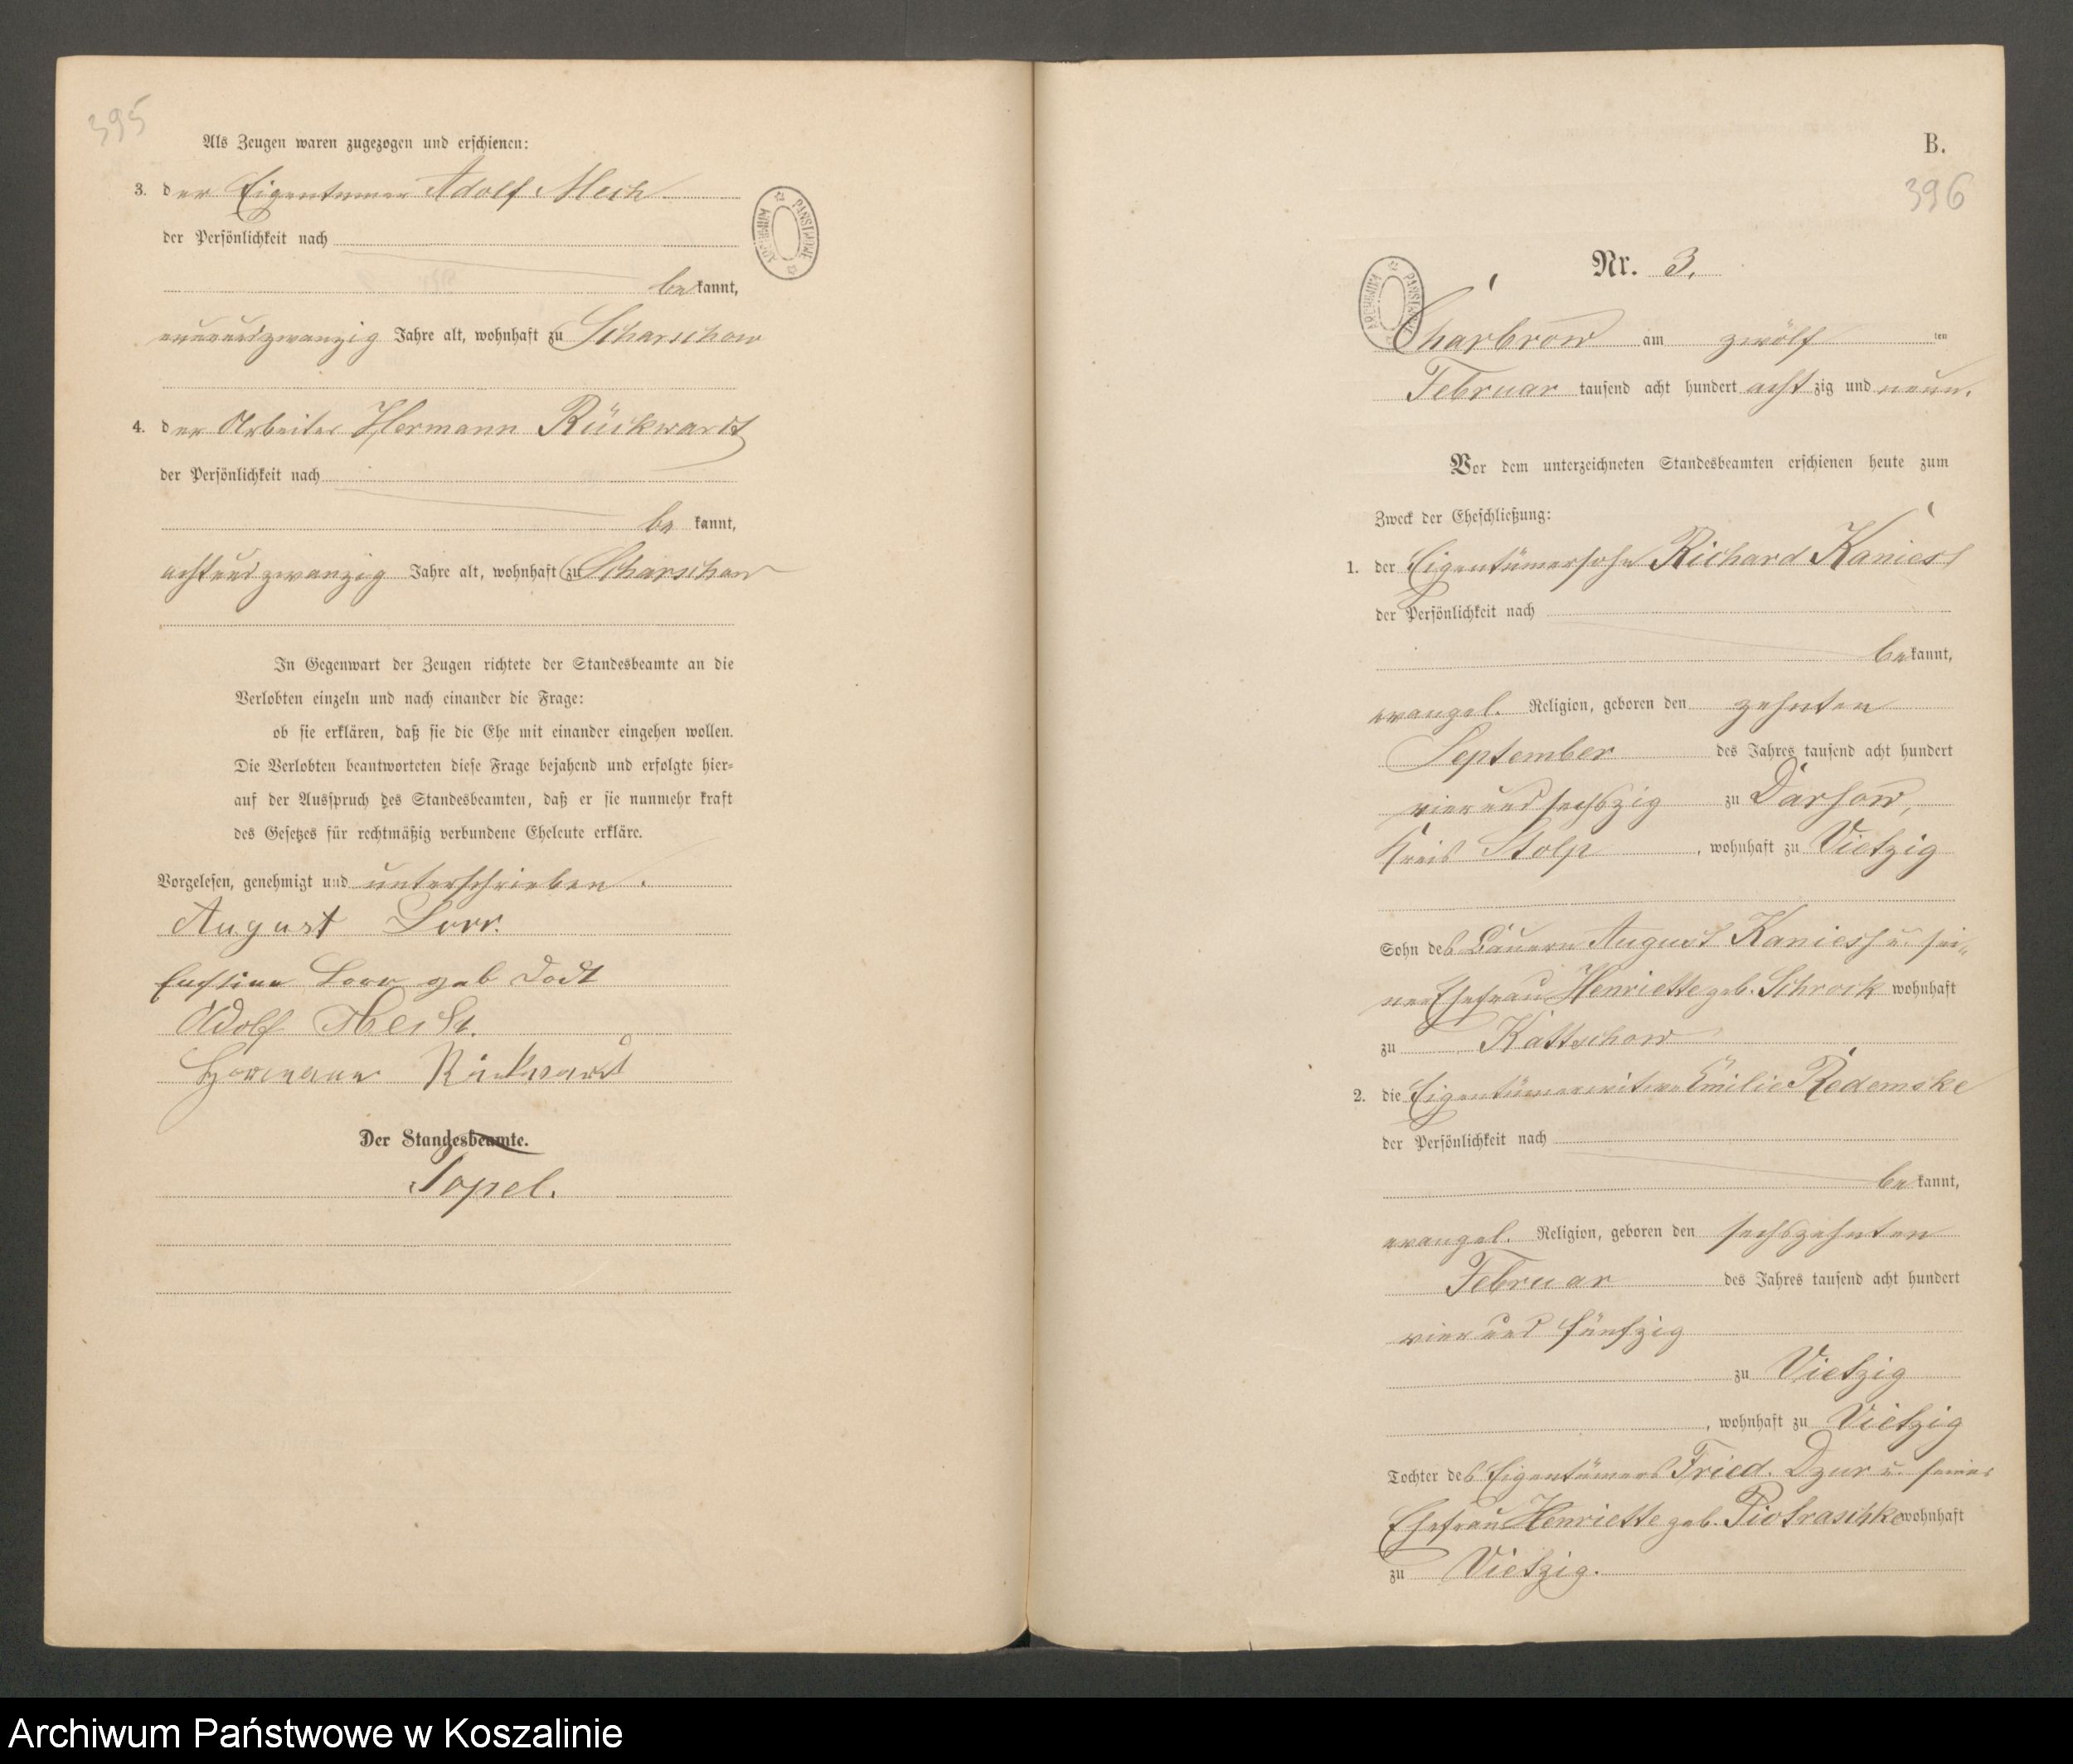 395
Als Zeugen waren zugezogen und erschienen:
3. der Eigentümer Adolf Mech
der Persönlichkeit nach
bekannt,
neunundzwanzig Jahre alt, wohnhaft zu Scharschow
4. der Arbeiter Hermann Rückwardt
der Persönlichkeit nach
be kannt,
achtundzwanzig Jahre alt, wohnhaft zu Scharschow
In Gegenwart der Zeugen richtete der Standesbeamte an die
Verlobten einzeln und nach einander die Frage:
ob sie erklären, daß sie die Ehe mit einander eingehen wollen.
Die Verlobten beantworteten diese Frage bejahend und erfolgte hier-
auf der Ausspruch des Standesbeamten, daß er sie nunmehr kraft
des Gesetzes für rechtmäßig verbundene Eheleute erkläre.
Vorgelesen, genehmigt und unterschrieben.
August Lorr.
Lorr geb
Adolf Mech.
Hermann Rückwardt
Der Standesbeamte.
Topel.
ARCHIWUM PAŃSTWOWE
B.
396
Nr. 3.
ARCHIWUM PAŃSTWOWE
Charbrow am zwölf ten
Februar tausend acht hundert acht zig und neun.
Vor dem unterzeichneten Standesbeamten erschienen heute zum
Zweck der Eheschließung:
1. der Eigentümersohn Richard Kaniess
der Persönlichkeit nach
bekannt,
evangel. Religion, geboren den zehnten
September des Jahres tausend acht hundert
vier und sechszig zu Darsow,
Kreis Stolp, wohnhaft zu Vietzig
Sohn des Bauern August Kaniess u. sei-
ner Ehefrau Henriette geb. Schrock wohnhaft
zu Kattschow
2. die Eigentümerwitwe Emilie Redemske
der Persönlichkeit nach
bekannt,
evangel. Religion, geboren den sechszehnten
Februar des Jahres tausend acht hundert
vier und fünfzig
zu Vietzig
, wohnhaft zu Vietzig
Tochter des Eigentümers Fried. Dzur u. seiner
Ehefrau Henriette geb. Piotraschke wohnhaft
zu Vietzig.
Archiwum Państwowe w Koszalinie